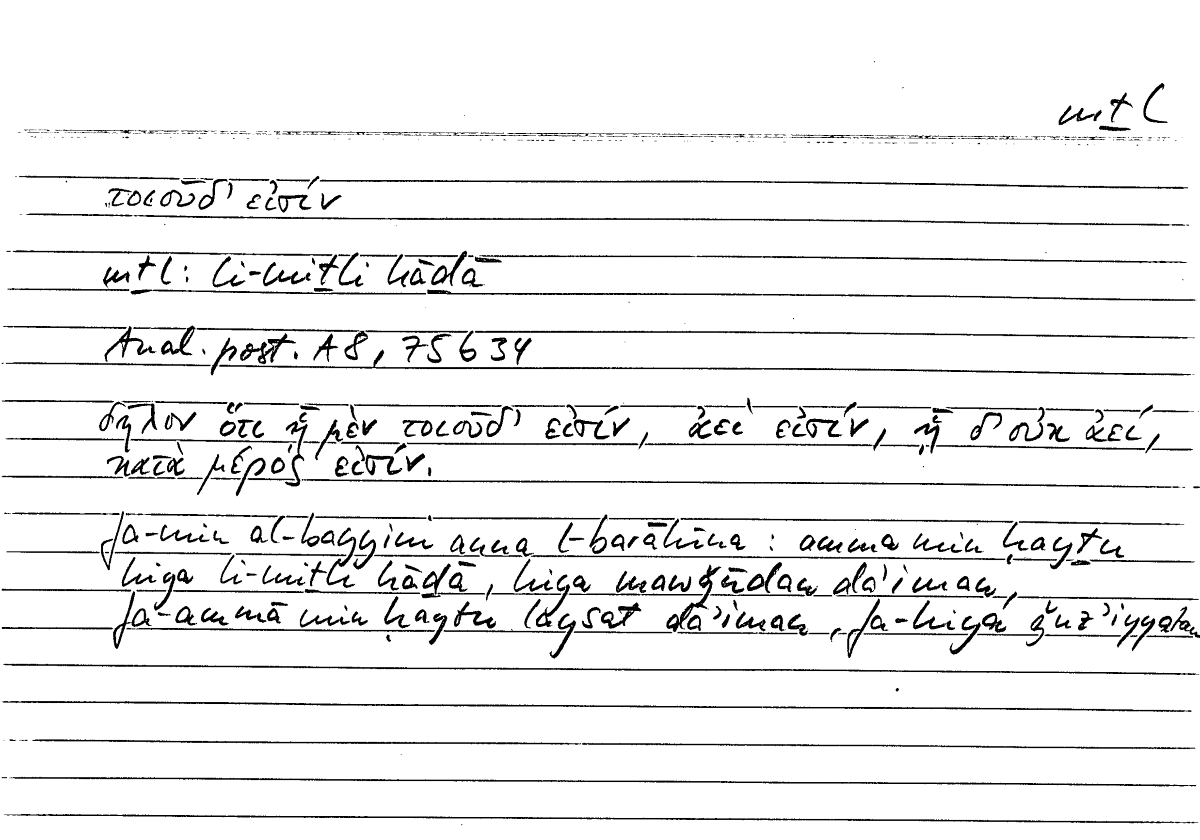 mṯl
τοιοῦδ᾽ εἰσίν
mṯl: li-miṯli hāḏā
Anal. post. A8, 75b34
δῆλον ὅτι ᾗ μὲν τοιοῦδ᾽ εἰσίν, ἀεί εἰσίν, ᾗ δ᾽ οὐκ ἀεί,
κατὰ μέρος εἰσίν.
fa-min al-bayyini anna l-barāhīna : amma min ḥayṯu
hiya li-miṯli hāḏā, hiya mawǧūdan dā'iman,
fa-ammā min ḥayṯu laysat dā'iman, fa-hiya ǧuz'iyyatan